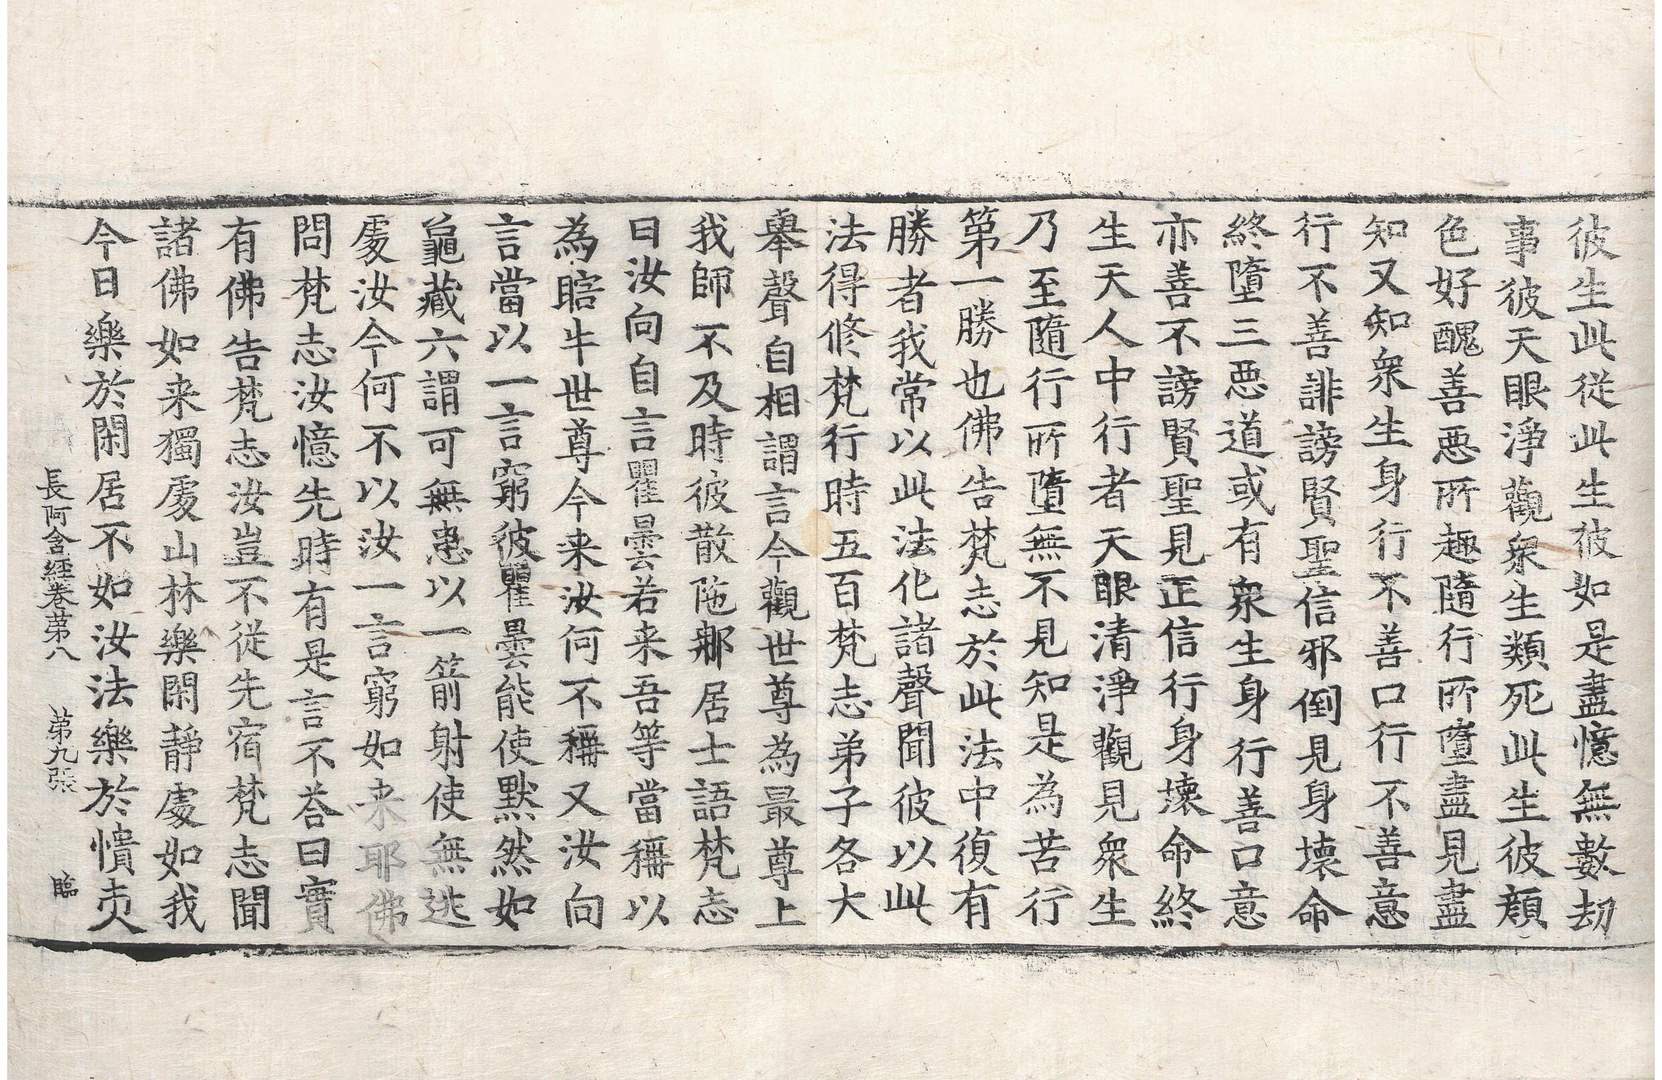 彼生此從此生彼如是盡憶無數劫
事彼天眼淨觀衆生類死此生彼顔
色好醜善惡所趣隨行所墮盡見盡
知又知衆生身行不善口行不善意
行不善誹謗賢聖信邪倒見身壞命
終墮三惡道或有衆生身行善口意
亦善不謗賢聖見正信行身壞命終
生天人中行者天眼清淨觀見衆生
乃至隨行所墮無不見知是為苦行
第一勝也佛告梵志於此法中復有
勝者我常以此法化諸聲聞彼以此
法得修梵行時五百梵志弟子各大
舉聲自相謂言今觀世尊為最尊上
我師不及時彼散陁那居士語梵志
曰汝向自言瞿曇若来吾等當稱以
為瞎牛世尊今来汝何不稱又汝向
言當以一言窮彼瞿曇能使默然如
龜藏六謂可無患以一箭射使無逃
處汝今何不以汝一言窮如来耶佛
問梵志汝憶先時有是言不荅曰實
有佛告梵志汝豈不從先宿梵志聞
諸佛如来獨處山林樂閑靜處如我
今日樂於閑居不如汝法樂於憒夾
長阿含經卷第八 第九張 臨